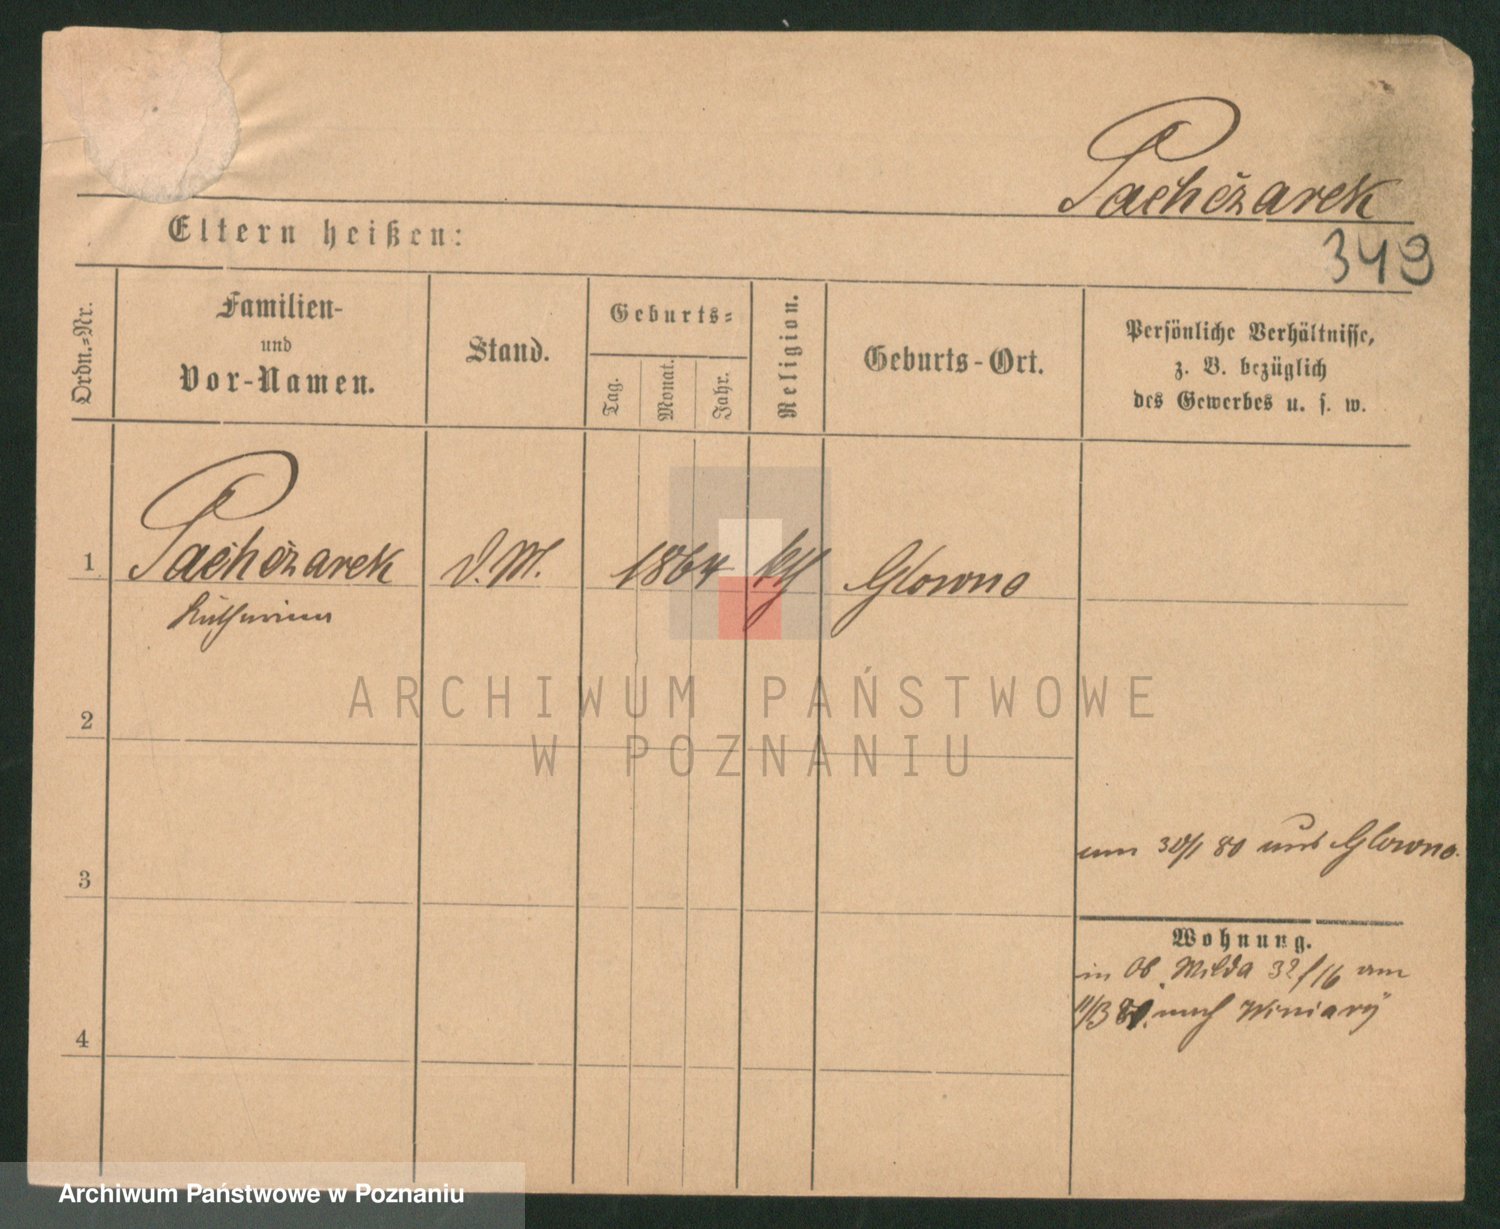 Pachczarek
349
Eltern heißen:
Ordn.-Nr.
Familien-
und
Vor-Namen.
Stand.
Geburts-
Tag.
Monat.
Jahr.
Religion.
Geburts-Ort.
Persönliche Verhältnisse,
z. B. bezüglich
des Gewerbes u. s. w.
1 Pachczarek D. M. 1864 kth Glowno
Katharina
2
ARCHIWUM PAŃSTWOWE
W POZNANIU
3
am 30/1 80 aus Glowno.
Wohnung.
in Ob. Wilda 32/16 am
11/3 81. nach Winiary
4
Archiwum Państwowe w Poznaniu